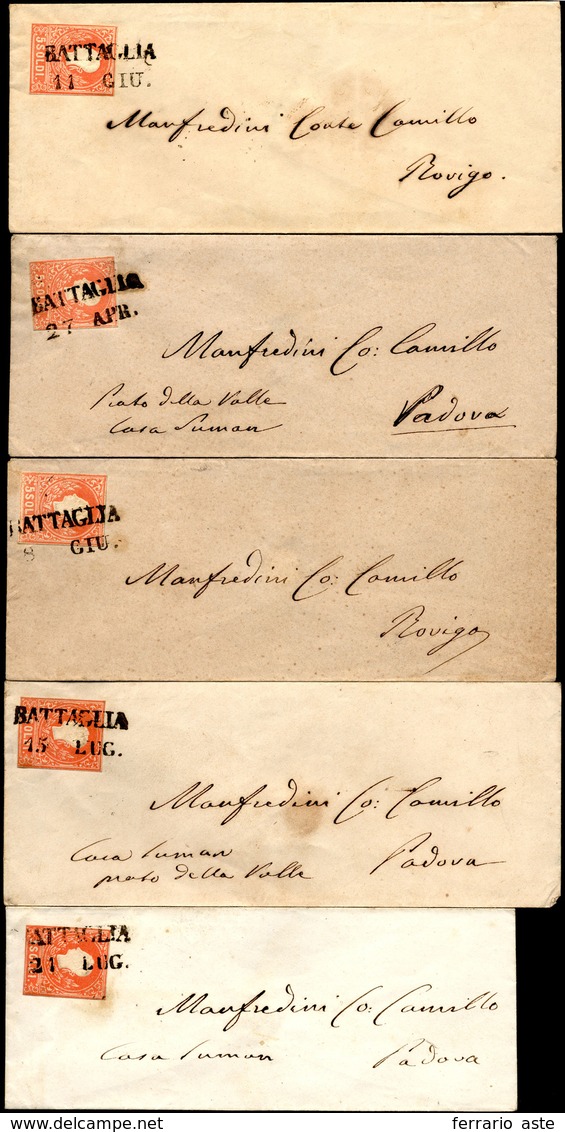 5 SOLDI
BATTAGLIA
11 GIU.
Manfredini Conte Camillo
Rovigo.
5 SOLDI
BATTAGLIA
27 APR.
Manfredini Co: Camillo
Prato della Valle
Padova
Casa Suman
5 SOLDI
BATTAGLIA
8 GIU.
Manfredini Co: Camillo
Rovigo
SOLDI
BATTAGLIA
15 LUG.
Manfredini Co: Camillo
Casa Suman
Padova
prato della Valle
ATTAGLIA
21 LUG.
Manfredini Co: Camillo
Casa Suman Padova
ferrario aste